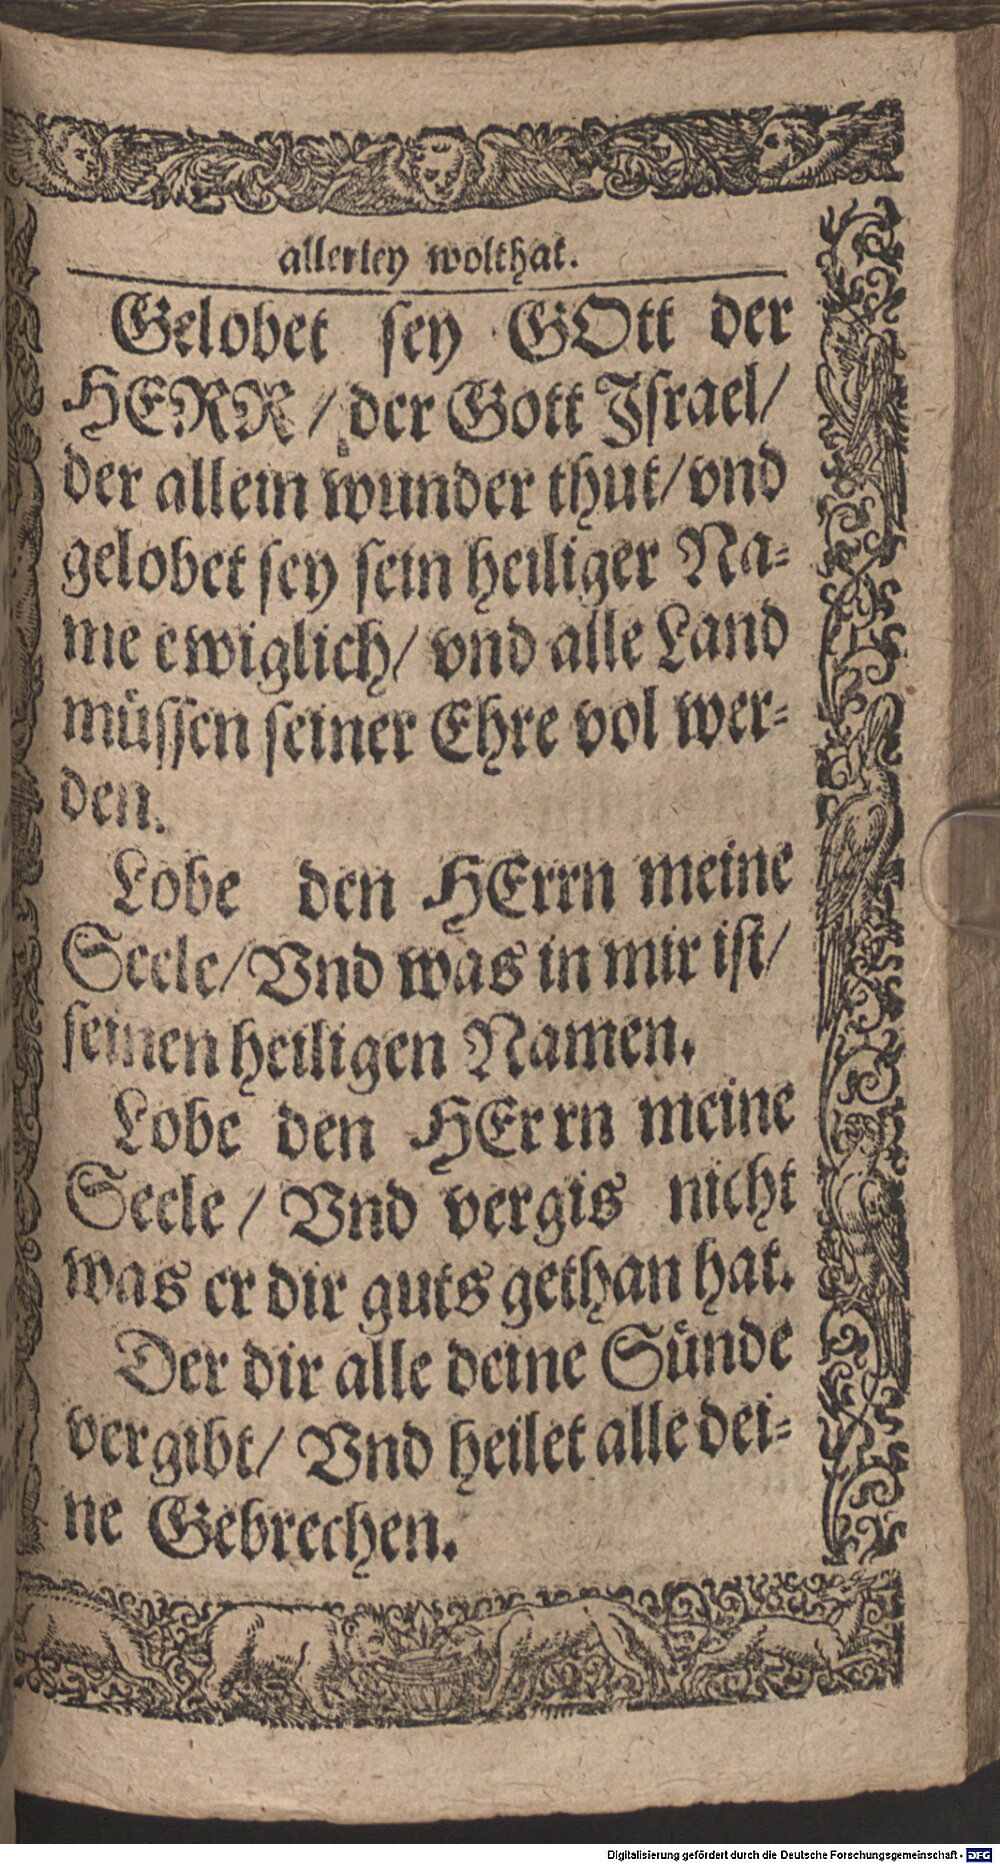 allerley wolthat.
Gelobet sey GOtt der
HERR / der Gott Jsrael/
der allein wunder thut/ vnd
gelobet sey sein heiliger Na⸗
me ewiglich/ vnd alle Land
müssen seiner Ehre vol wer⸗
den.
Lobe den HErrn meine
Seele/ Vnd was in mir ist/
seinen heiligen Namen.
Lobe den HErrn meine
Seele / Vnd vergis nicht
was er dir guts gethan hat.
Der dir alle deine Sünde
vergibt/ Vnd heilet alle dei⸗
ne Gebrechen.
Digitalisierung gefördert durch die Deutsche Forschungsgemeinschaft - DFG